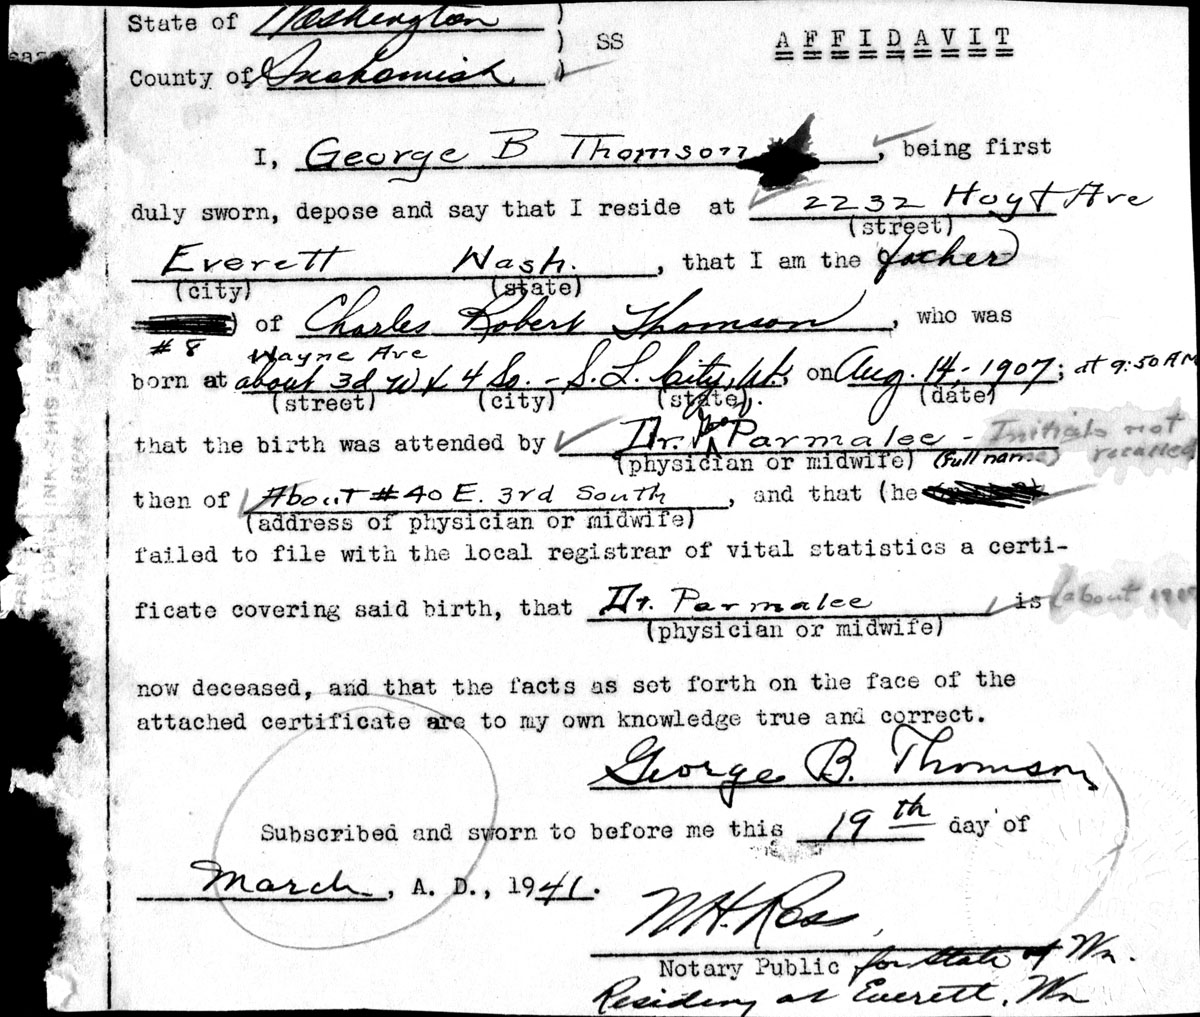 State of Washington )
) SS AFFIDAVIT
County of Snohomish )
I, George B Thomson, being first
duly sworn, depose and say that I reside at 2232 Hoyt Ave
(street)
Everett Wash., that I am the father
(city) (state)
of Charles Robert Thomson, who was
#8 Wayne Ave
born at about 3d W & 4 So. - S. L. City, Ut.; on Aug. 14, - 1907; at 9:50 AM
(street) (city) (state). (date)
that the birth was attended by Dr. Parmalee - Initials not
(physician or midwife) (full name) recalled
then of About #40 E. 3rd South, and that (he
(address of physician or midwife)
failed to file with the local registrar of vital statistics a certi-
ficate covering said birth, that Dr. Parmalee is (about
(physician or midwife)
now deceased, and that the facts as set forth on the face of the
attached certificate are to my own knowledge true and correct.
George B. Thomson
Subscribed and sworn to before me this 19th day of
March, A. D., 1941.
N.H. Ross
Notary Public for State of Wn.
Residing at Everett, Wn